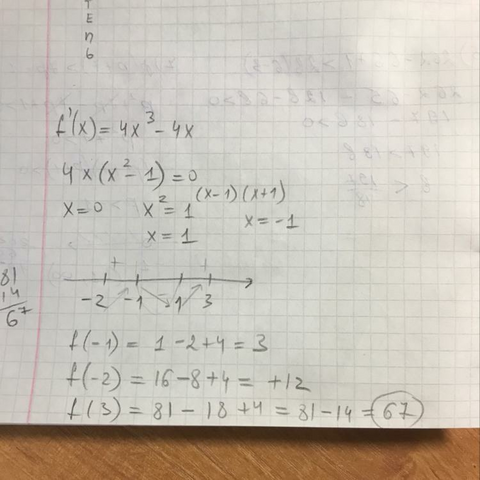 т
е
п
ь
f'(x) = 4x³ - 4x
4x(x² - 1) = 0
(x-1)(x+1)
x = 0 x² = 1 x = -1
x = 1
+ +
-2 -1 1 3
81
14
67
f(-1) = 1 - 2 + 4 = 3
f(-2) = 16 - 8 + 4 = +12
f(3) = 81 - 18 + 4 = 81 - 14 = 67